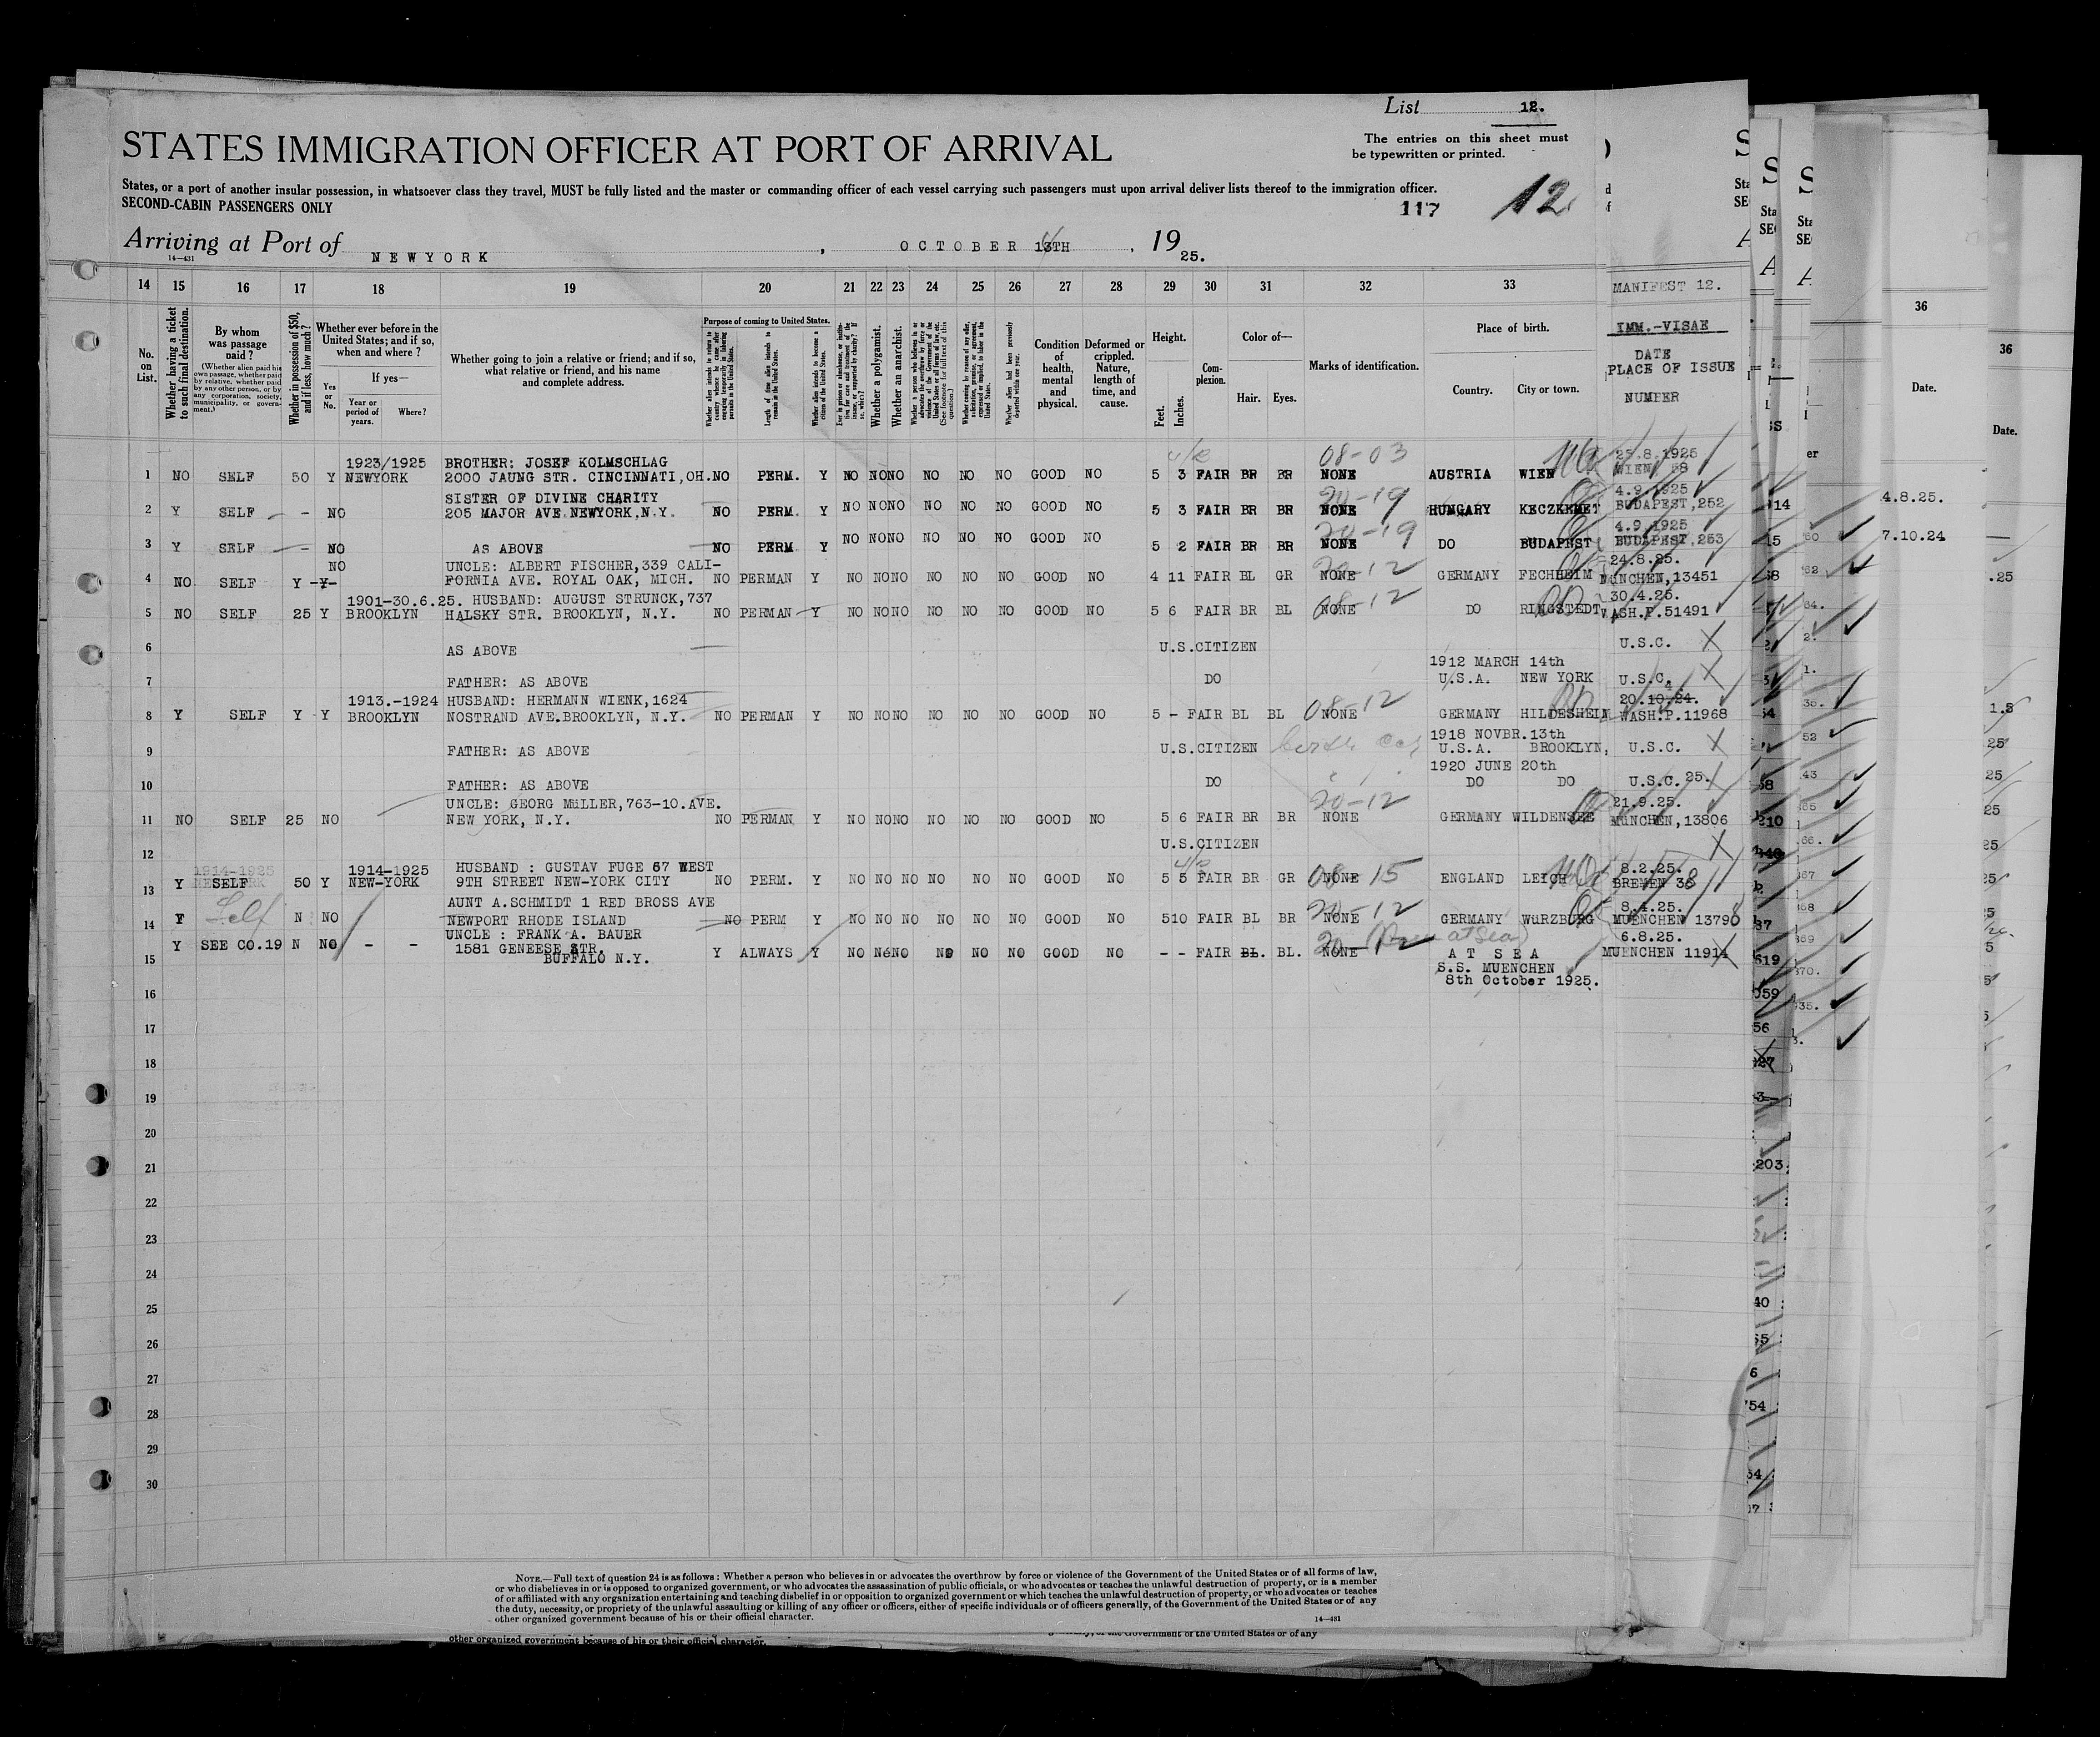 List 12.
STATES IMMIGRATION OFFICER AT PORT OF ARRIVAL
The entries on this sheet must
be typewritten or printed.
States, or a port of another insular possession, in whatsoever class they travel, MUST be fully listed and the master or commanding officer of each vessel carrying such passengers must upon arrival deliver lists thereof to the immigration officer.
SECOND-CABIN PASSENGERS ONLY
117 12
Arriving at Port of NEWYORK, OCTOBER 13TH, 1925.
14—431
14 15 16 17 18 19 20 21 22 23 24 25 26 27 28 29 30 31 32 33 MANIFEST 12.
No. on List.
Whether having a ticket to such final destination.
By whom was passage paid?
(Whether alien paid his own passage, whether paid by relative, whether paid by any other person, or by any corporation, society, municipality, or government.)
Whether in possession of $50, and if less, how much?
Whether ever before in the United States; and if so, when and where?
Yes or No.
If yes—
Year or period of years.
Where?
Whether going to join a relative or friend; and if so, what relative or friend, and his name and complete address.
Purpose of coming to United States.
Whether alien intends to return to country whence he came after engaging temporarily in laboring pursuits in the United States.
Length of time alien intends to remain in the United States.
Whether alien intends to become a citizen of the United States.
Whether a polygamist.
Whether an anarchist.
Condition of health, mental and physical.
Deformed or crippled. Nature, length of time, and cause.
Height.
Feet. Inches.
Complexion.
Color of—
Hair. Eyes.
Marks of identification.
Place of birth.
Country. City or town.
IMM.-VISAE
DATE
PLACE OF ISSUE
NUMBER
1923/1925 BROTHER: JOSEF KOLMSCHLAG 08-03 25.8.1925
1 NO SELF 50 Y NEWYORK 2000 JAUNG STR. CINCINNATI,OH. NO PERM. Y NO NO NO NO NO NO GOOD NO 5 3 FAIR BR BR NONE AUSTRIA WIEN WIEN, 68
SISTER OF DIVINE CHARITY 20-19 4.9.1925
2 Y SELF - NO 205 MAJOR AVE.NEWYORK,N.Y. NO PERM. Y NO NO NO NO NO NO GOOD NO 5 3 FAIR BR BR NONE HUNGARY KECZKEMET BUDAPEST,252
20-19 4.9.1925
3 Y SELF - NO AS ABOVE NO PERM Y NO NO NO NO NO NO GOOD NO 5 2 FAIR BR BR NONE DO BUDAPEST BUDAPEST,253
NO UNCLE: ALBERT FISCHER,339 CALI- 20-12 24.8.25.
4 NO SELF Y -Y- FORNIA AVE. ROYAL OAK, MICH. NO PERMAN Y NO NO NO NO NO NO GOOD NO 4 11 FAIR BL GR NONE GERMANY FECHHEIM MüNCHEN,13451
1901-30.6.25. HUSBAND: AUGUST STRUNCK,737 08-12 30.4.25.
5 NO SELF 25 Y BROOKLYN HALSKY STR. BROOKLYN, N.Y. NO PERMAN Y NO NO NO NO NO NO GOOD NO 5 6 FAIR BR BL NONE DO RINGSTEDT, WASH.P.51491
6 AS ABOVE U.S.CITIZEN U.S.C. X
1912 MARCH 14th
7 FATHER: AS ABOVE DO U.S.A. NEW YORK U.S.C. X
1913.-1924 HUSBAND: HERMANN WIENK,1624 08-12 20.10.24.
8 Y SELF Y Y BROOKLYN NOSTRAND AVE.BROOKLYN, N.Y. NO PERMAN Y NO NO NO NO NO NO GOOD NO 5 - FAIR BL BL NONE GERMANY HILDESHEIM WASH.P.11968
1918 NOVBR.13th
9 FATHER: AS ABOVE U.S.CITIZEN U.S.A. BROOKLYN, U.S.C. X
1920 JUNE 20th
10 FATHER: AS ABOVE DO DO DO U.S.C. 25. X
UNCLE: GEORG MüLLER,763-10.AVE. 20-12 21.9.25.
11 NO SELF 25 NO NEW YORK, N.Y. NO PERMAN Y NO NO NO NO NO NO GOOD NO 5 6 FAIR BR BR NONE GERMANY WILDENSEE MüNCHEN,13806
12 U.S.CITIZEN X
1914-1925 1914-1925 HUSBAND : GUSTAV FUGE 67 WEST 08-15 8.2.25.
13 Y SELF 50 Y NEW-YORK 9TH STREET NEW-YORK CITY NO PERM. Y NO NO NO NO NO NO GOOD NO 5 5 FAIR BR GR NONE ENGLAND LEIGH BREMEN 38
AUNT A.SCHMIDT 1 RED BROSS AVE 20-12 8.4.25.
14 Y Self N NO NEWPORT RHODE ISLAND NO PERM Y NO NO NO NO NO NO GOOD NO 510 FAIR BL BR NONE GERMANY WüRZBURG MUENCHEN 13798
UNCLE : FRANK A. BAUER 20-12 (Born at Sea) 6.8.25.
15 Y SEE CO.19 N NO - - 1581 GENEESE STR. Y ALWAYS Y NO NO NO NO NO NO GOOD NO - - FAIR BL. BL. NONE AT SEA MUENCHEN 11914 X
BUFFALO N.Y. S.S. MUENCHEN
8th October 1925.
16
17
18
19
20
21
22
23
24
25
26
27
28
29
30
NOTE.—Full text of question 24 is as follows: Whether a person who believes in or advocates the overthrow by force or violence of the Government of the United States or of all forms of law,
or who disbelieves in or is opposed to organized government, or who advocates the assassination of public officials, or who advocates or teaches the unlawful destruction of property, or is a member
of or affiliated with any organization entertaining and teaching disbelief in or opposition to organized government or which teaches the unlawful destruction of property, or who advocates or teaches
the duty, necessity, or propriety of the unlawful assaulting or killing of any officer or officers, either of specific individuals or of officers generally, of the Government of the United States or of any
other organized government because of his or their official character.
14—431
other organized government because of his or their official character.
36
Date.
4.8.25.
7.10.24
36
Date.